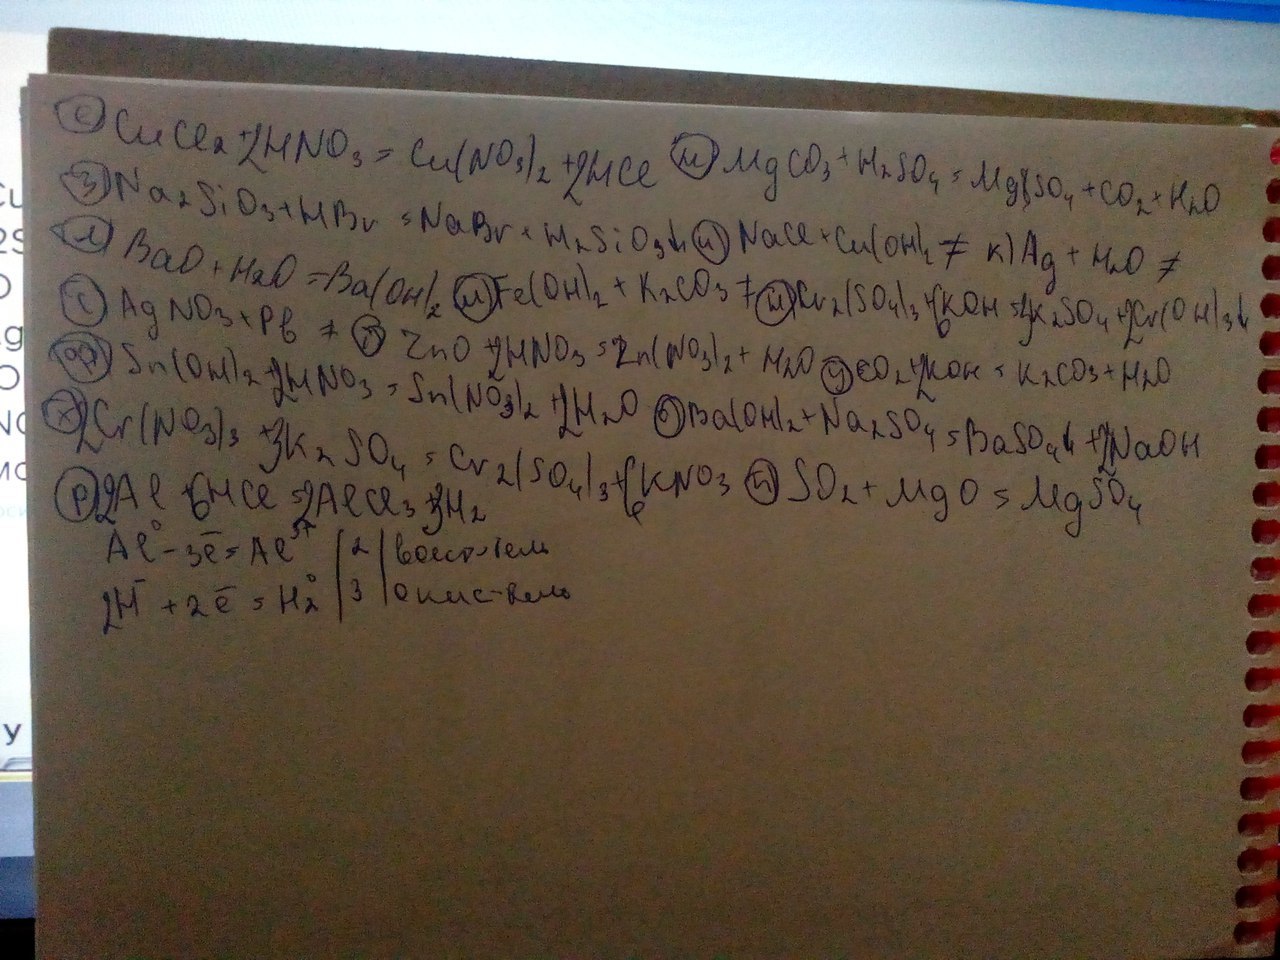 е) CuCl2 + 2HNO3 = Cu(NO3)2 + 2HCl м) MgCO3 + H2SO4 = MgSO4 + CO2 + H2O
з) Na2SiO3 + HBr = NaBr + H2SiO3↓ и) NaCl + Cu(OH)2 ≠ к) Ag + H2O ≠
л) BaO + H2O = Ba(OH)2 м) Fe(OH)2 + K2CO3 ≠ н) Cr2(SO4)3 + 6KOH = 3K2SO4 + 2Cr(OH)3↓
с) AgNO3 + Pb ≠ т) ZnO + 2HNO3 = Zn(NO3)2 + H2O у) CO2 + 2KOH = K2CO3 + H2O
ф) Sn(OH)2 + 2HNO3 = Sn(NO3)2 + 2H2O б) Ba(OH)2 + Na2SO4 = BaSO4↓ + 2NaOH
х) 2Cr(NO3)3 + 3K2SO4 = Cr2(SO4)3 + 6KNO3 ч) SO2 + MgO = MgSO4
р) 2Al + 6HCl = 2AlCl3 + 3H2
Al⁰ - 3e̅ = Al³⁺ | 2 | восст-тель
2H⁻ + 2e̅ = H2⁰ | 3 | окис-тель